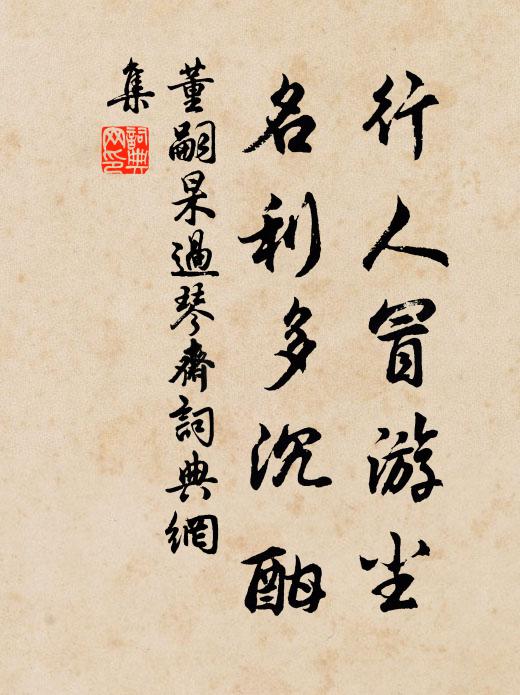 行人冒游尘
名利多沉酣
董嗣杲過琴齋詞典網
集
詞典网印